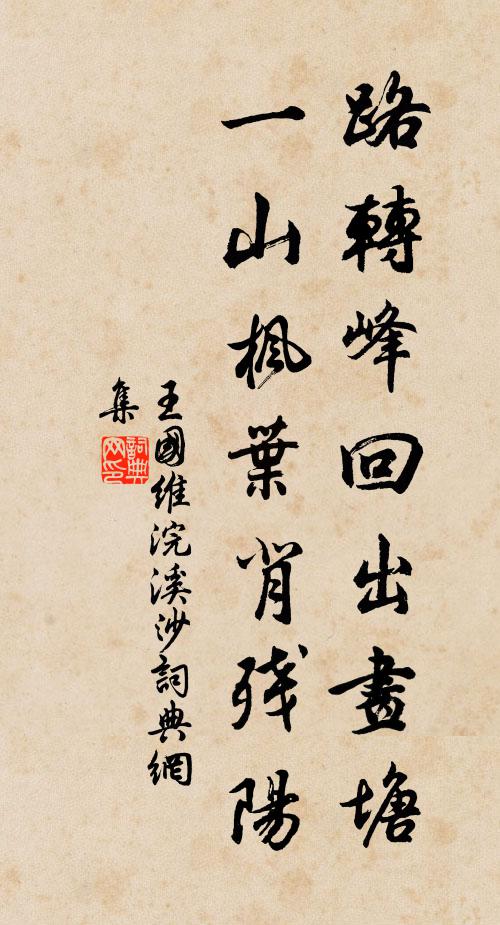 路轉峰回出畫塘
一山楓葉背殘陽
王國維浣溪沙詞典網
集
詞典網印